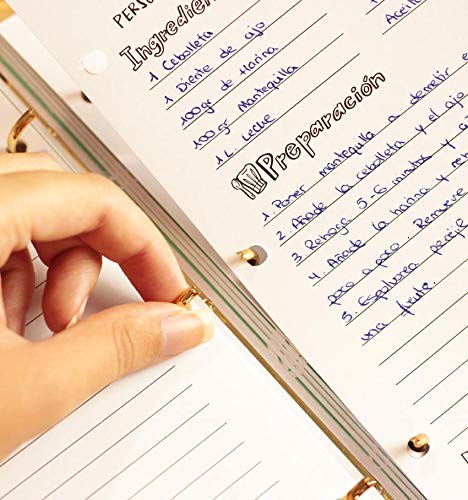 PERSO
Ingredien
1 Cebolleta
1 Diente de ajo
100gr de Harina
100gr Mantequilla
1 L. Leche
Aceite
Preparación
1. Poner mantequilla a derretir e
2. Añade la cebolleta y el ajo
3. Rehoga 5-6 minutos y a
4. Añade la harina y re
poco a poco. Remueve
5. Espolvorea pereje
una fuente.